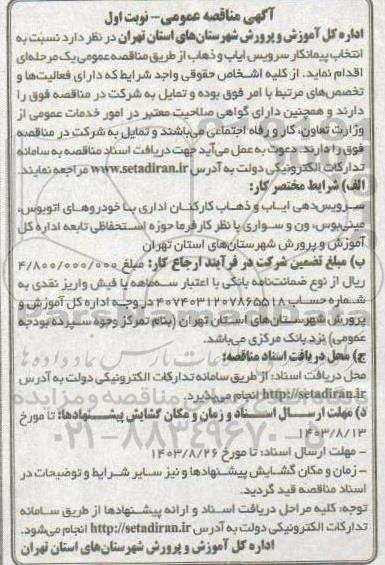 آگهی مناقصه عمومی - نوبت اول
اداره کل آموزش و پرورش شهرستان‌های استان تهران در نظر دارد نسبت به
انتخاب پیمانکار سرویس ایاب و ذهاب از طریق مناقصه عمومی یک مرحله‌ای
اقدام نماید. از کلیه اشخاص حقوقی واجد شرایط که دارای فعالیت‌ها و
تخصص‌های مرتبط با امر فوق بوده و تمایل به شرکت در مناقصه فوق را
دارند و همچنین دارای گواهی صلاحیت معتبر در امور خدمات عمومی از
وزارت تعاون، کار و رفاه اجتماعی می‌باشند و تمایل به شرکت در مناقصه
فوق را دارند. دعوت به عمل می‌آید جهت دریافت اسناد مناقصه به سامانه
تدارکات الکترونیکی دولت به آدرس www.setadiran.ir مراجعه نمایند.
الف) شرایط مختصر کار:
سرویس‌دهی ایاب و ذهاب کارکنان اداری با خودروهای اتوبوس،
مینی‌بوس، ون و سواری با نظر کارفرما حوزه استحفاظی تابعه اداره کل
آموزش و پرورش شهرستان‌های استان تهران
ب) مبلغ تضمین شرکت در فرآیند ارجاع کار: مبلغ ۴/۸۰۰/۰۰۰/۰۰۰
ریال از نوع ضمانت‌نامه بانکی با اعتبار سه‌ماهه یا فیش واریز نقدی به
شماره حساب ۴۰۷۴۰۳۱۲۰۷۸۶۵۵۱۸ در وجه اداره کل آموزش و
پرورش شهرستان‌های استان تهران (بنام تمرکز وجوه سپرده بودجه
عمومی) نزد بانک مرکزی می‌باشد.
ج) محل دریافت اسناد مناقصه:
محل دریافت اسناد: از طریق سامانه تدارکات الکترونیکی دولت به آدرس
http://setadiran.ir انجام می‌پذیرد.
د) مهلت ارسال اسناد و زمان و مکان گشایش پیشنهادها: تا مورخ
۱۴۰۳/۸/۱۳
- مهلت ارسال اسناد: تا مورخ ۱۴۰۳/۸/۲۶
- زمان و مکان گشایش پیشنهادها و نیز سایر شرایط و توضیحات در
اسناد مناقصه قید گردید.
توجه: کلیه مراحل دریافت اسناد و ارائه پیشنهادها از طریق سامانه
تدارکات الکترونیکی دولت به آدرس http://setadiran.ir انجام می‌شود.
اداره کل آموزش و پرورش شهرستان‌های استان تهران
۰۲۱-۸۸۳۴۹۶۷۰-۵